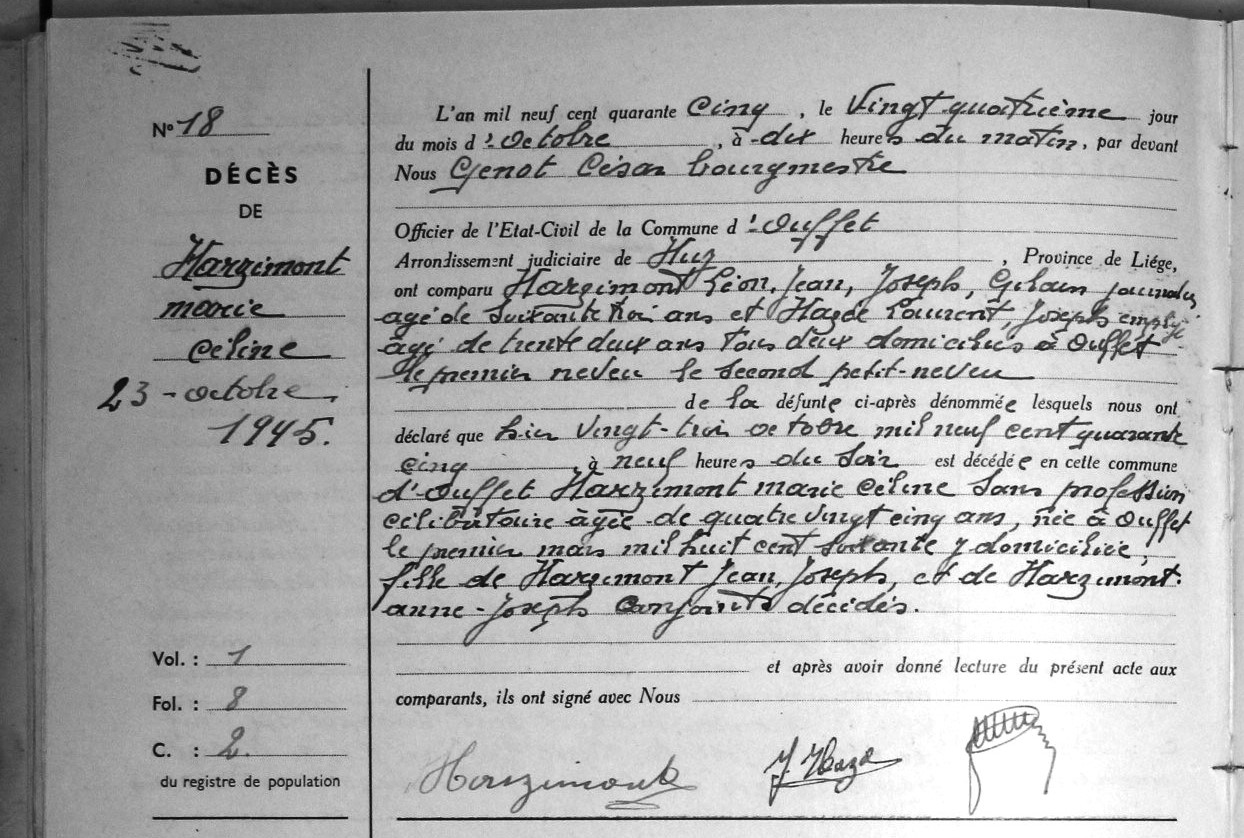 N° 18
DÉCÈS
DE
Harzimont
marie
céline
23 - octobre
1945.
Vol. : 1
Fol. : 8
C. : 2.
du registre de population
L'an mil neuf cent quarante Cinq, le Vingt quatrième jour
du mois d'octobre, à dix heures du matin, par devant
Nous Genot César bourgmestre
Officier de l'Etat-Civil de la Commune d'Ouffet
Arrondissement judiciaire de Huy, Province de Liége,
ont comparu Harzimont Léon, Jean, Joseph, Gilain journalier
agé de soixante troi ans et Hazée Laurent, Joseph employé
âgé de trente deux ans tous deux domiciliés à Ouffet
le premier neveu le second petit-neveu
de la défunte ci-après dénommée lesquels nous ont
déclaré que hier vingt-trois octobre mil neuf cent quarante
cinq, à neuf heures du soir est décédée en cette commune
d'Ouffet Harzimont marie céline sans profession
célibataire âgée de quatre vingt cinq ans, née à Ouffet
le premier mars mil huit cent soixante y domiciliée,
fille de Harzimont Jean, Joseph, et de Harzimont
anne-Joseph Conjoints décédés.
et après avoir donné lecture du présent acte aux
comparants, ils ont signé avec Nous
Harzimont